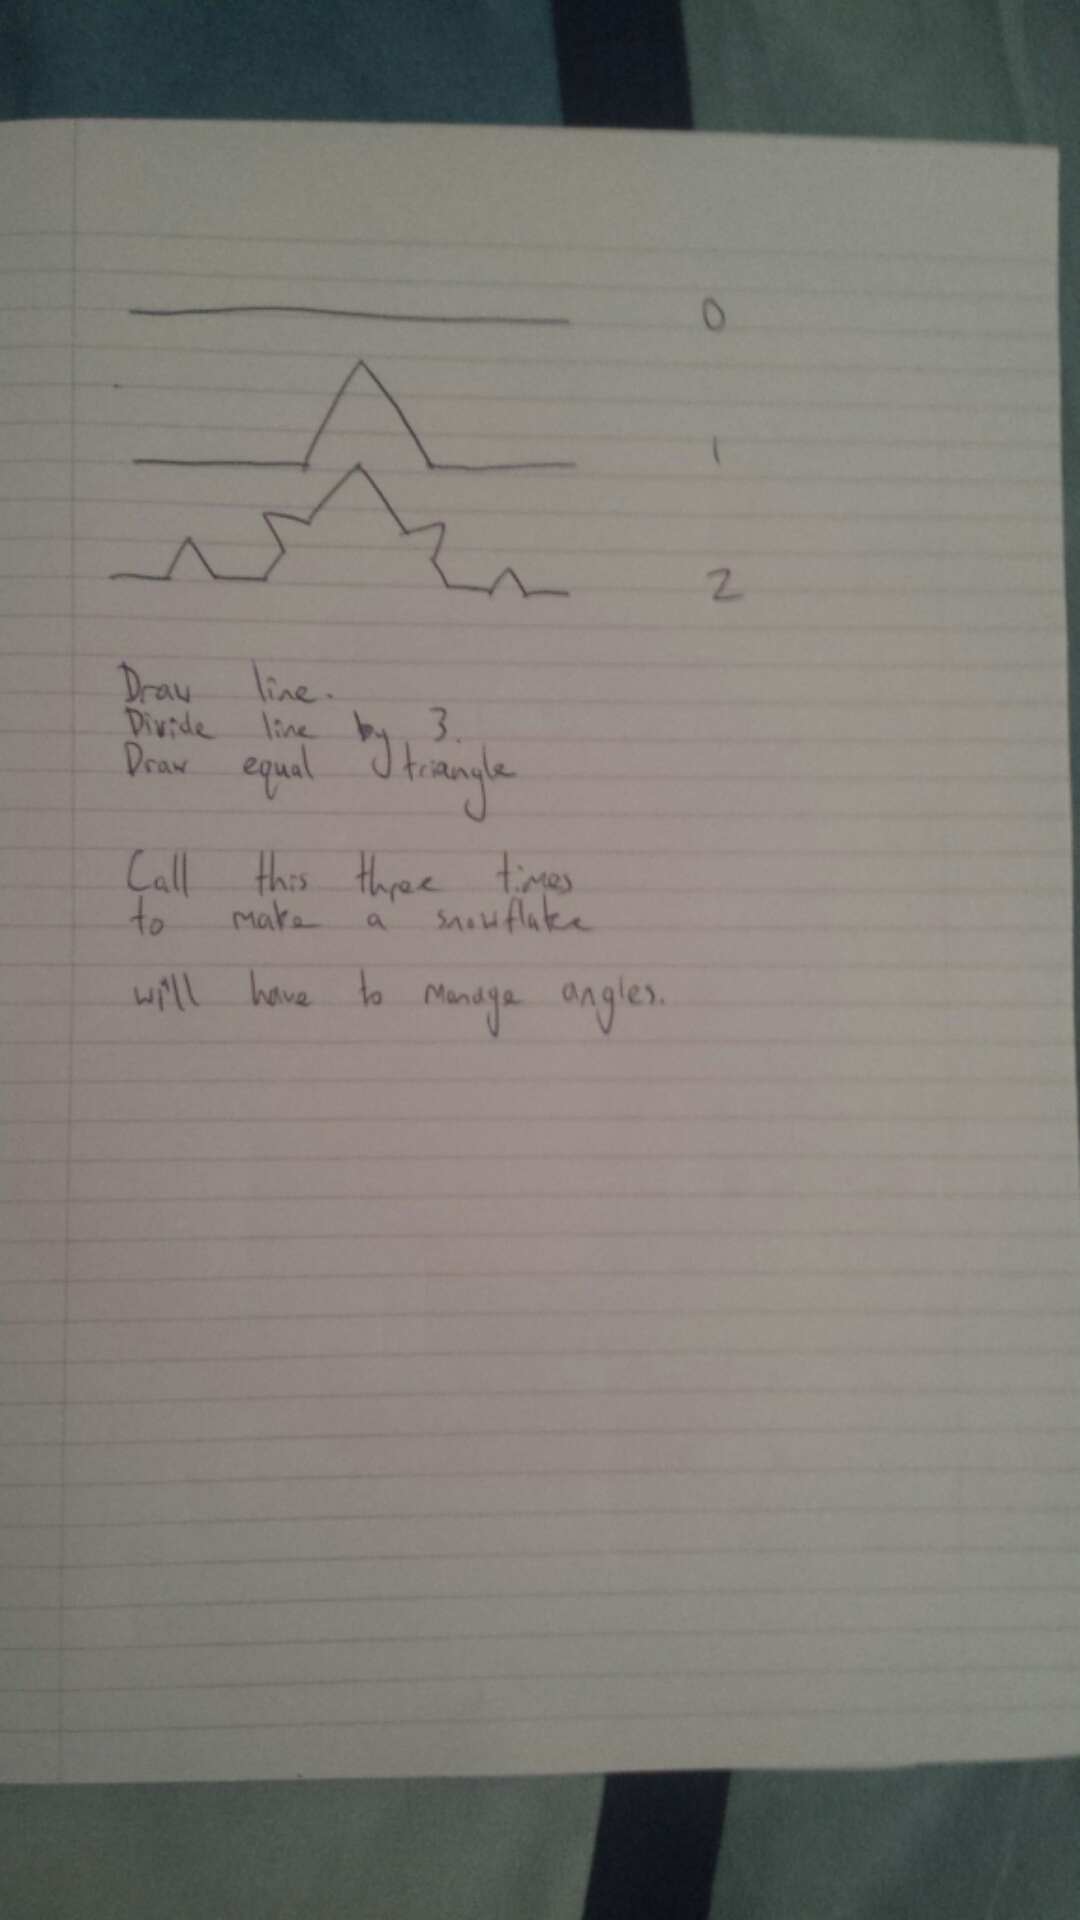 0
1
2
Draw line.
Divide line by 3.
Draw equal triangle
Call this three times
to make a snowflake
will have to manage angles.